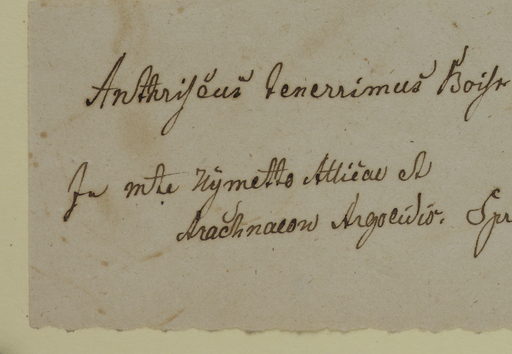 Anthriscus tenerrimus Boiss
In mte Hymetto Atticae et
Arachnaeon Argolidis. Spr